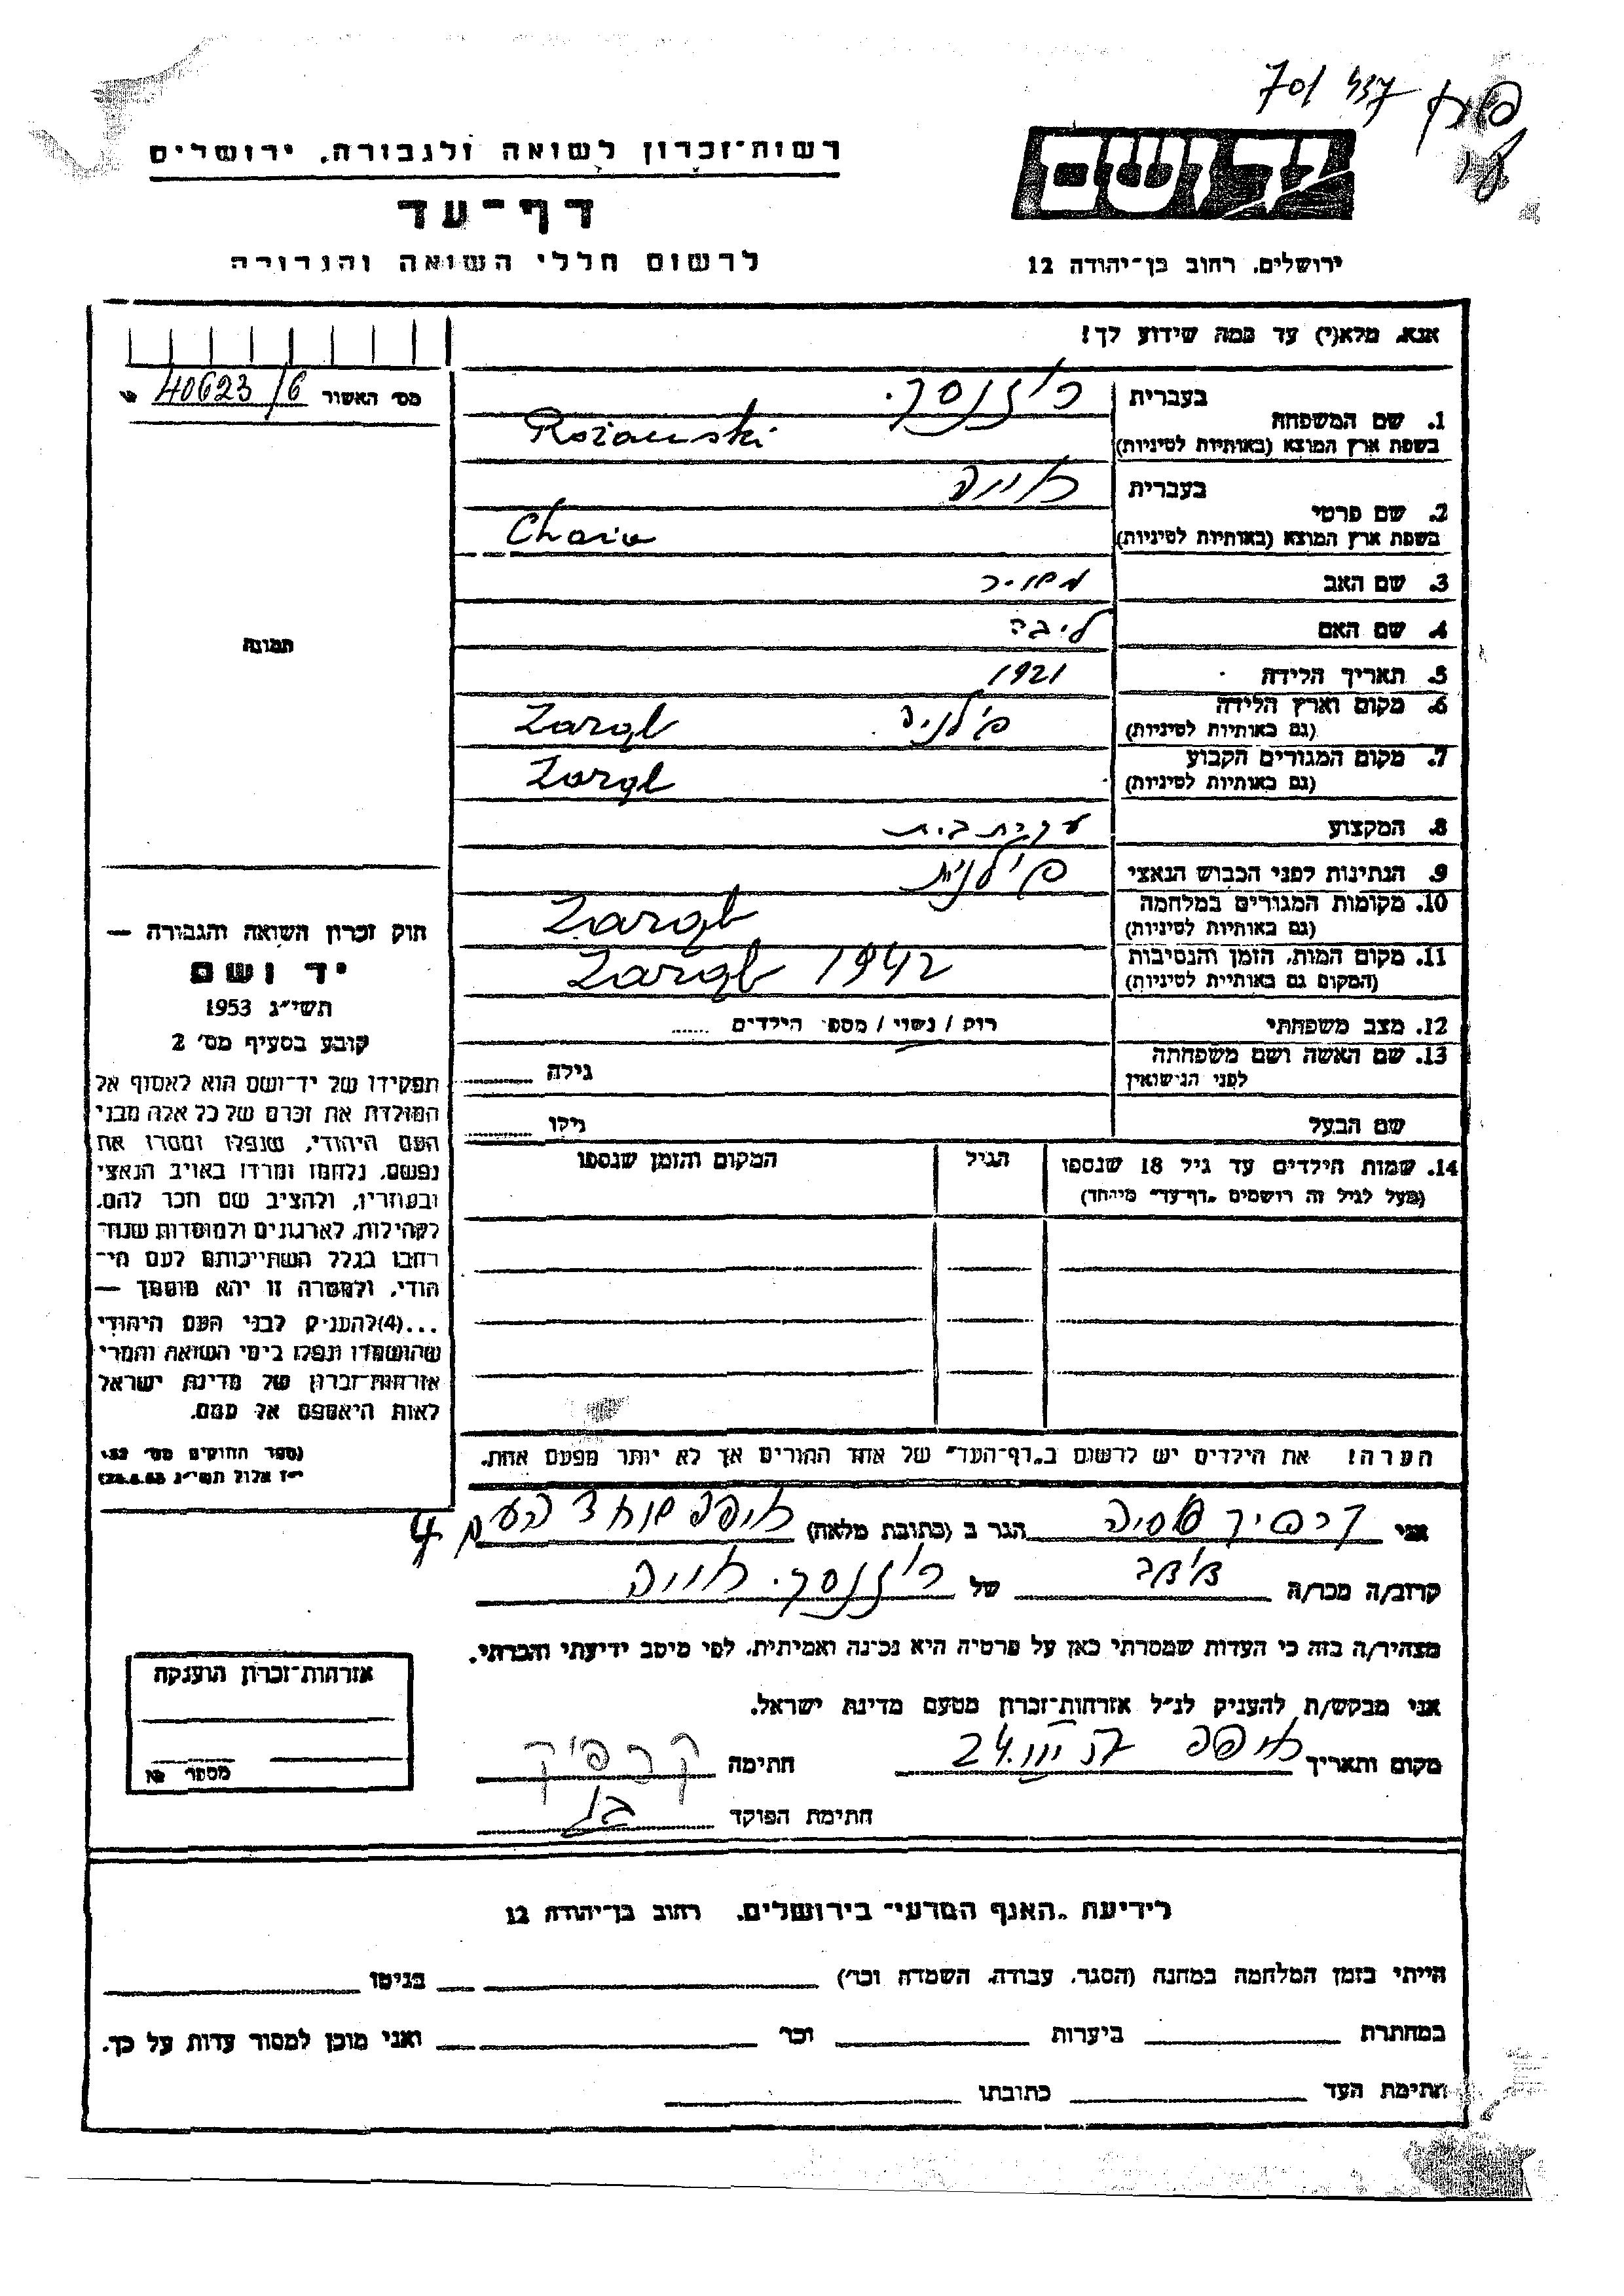 701 437
רשות־זכרון לשואה ולגבורה, ירושלים
יד ושם
דף־עד
לרשום חללי השואה והגבורה
ירושלים, רחוב בן־יהודה 12
אנא, מלא(י) עד כמה שידוע לך!
מס׳ האשור 40623/6
בעברית
1. שם המשפחה
בשפת ארץ המוצא (באותיות לטיניות)
בעברית
2. שם פרטי חיה
בשפת ארץ המוצא (באותיות לטיניות)
3. שם האב
4. שם האם ליבה
5. תאריך הלידה 1921
6. מקום וארץ הלידה פולניה
(גם באותיות לטיניות)
7. מקום המגורים הקבוע
(גם באותיות לטיניות)
8. המקצוע עקרת בית
9. הנתינות לפני הכבוש הנאצי פולנית
10. מקומות המגורים במלחמה
(גם באותיות לטיניות)
11. מקום המות, הזמן והנסיבות 1942
(המקום גם באותיות לטיניות)
12. מצב משפחתי רווק / נשוי / מספר הילדים
13. שם האשה ושם משפחתה
לפני הנישואין גילה
שם הבעל גילו
14. שמות הילדים עד גיל 18 שנספו הגיל המקום והזמן שנספו
(מעל לגיל זה רושמים „דף־עד״ מיוחד)
הערה! את הילדים יש לרשום ב„דף־העד״ של אחד ההורים אך לא יותר מפעם אחת.
תמונה
חוק זכרון השואה והגבורה —
יד ושם
תשי״ג 1953
קובע בסעיף מס׳ 2
תפקידו של יד־ושם הוא לאסוף אל
המולדת את זכרם של כל אלה מבני
העם היהודי, שנפלו ומסרו את
נפשם, נלחמו ומרדו באויב הנאצי
ובעוזריו, ולהציב שם וזכר להם,
לקהילות, לארגונים ולמוסדות שנח־
רבו בגלל השתייכותם לעם הי־
הודי, ולמטרה זו יהא מוסמך —
...(4)להעניק לבני העם היהודי
שהושמדו ונפלו בימי השואה והמרי
אזרחות־זכרון של מדינת ישראל
לאות היאספם אל עמם.
(ספר החוקים מס׳ 132,
י״ז אלול תשי״ג 28.8.53)
אני הגר ב (כתובת מלאה) חיפה אחד העם 4
קרוב/ה מכר/ה של חיה
מצהיר/ה בזה כי העדות שמסרתי כאן על פרטיה היא נכונה ואמיתית, לפי מיטב ידיעתי והכרתי.
אני מבקש/ת להעניק לנ״ל אזרחות־זכרון מטעם מדינת ישראל.
מקום ותאריך חיפה חתימה
חתימת הפוקד
אזרחות־זכרון הוענקה
מספר
לידיעת „האגף המדעי״ בירושלים, רחוב בן־יהודה 12
הייתי בזמן המלחמה במחנה (הסגר, עבודה, השמדה וכו׳) בגיטו
במחתרת ביערות וכו׳ ואני מוכן למסור עדות על כך.
חתימת העד כתובתו